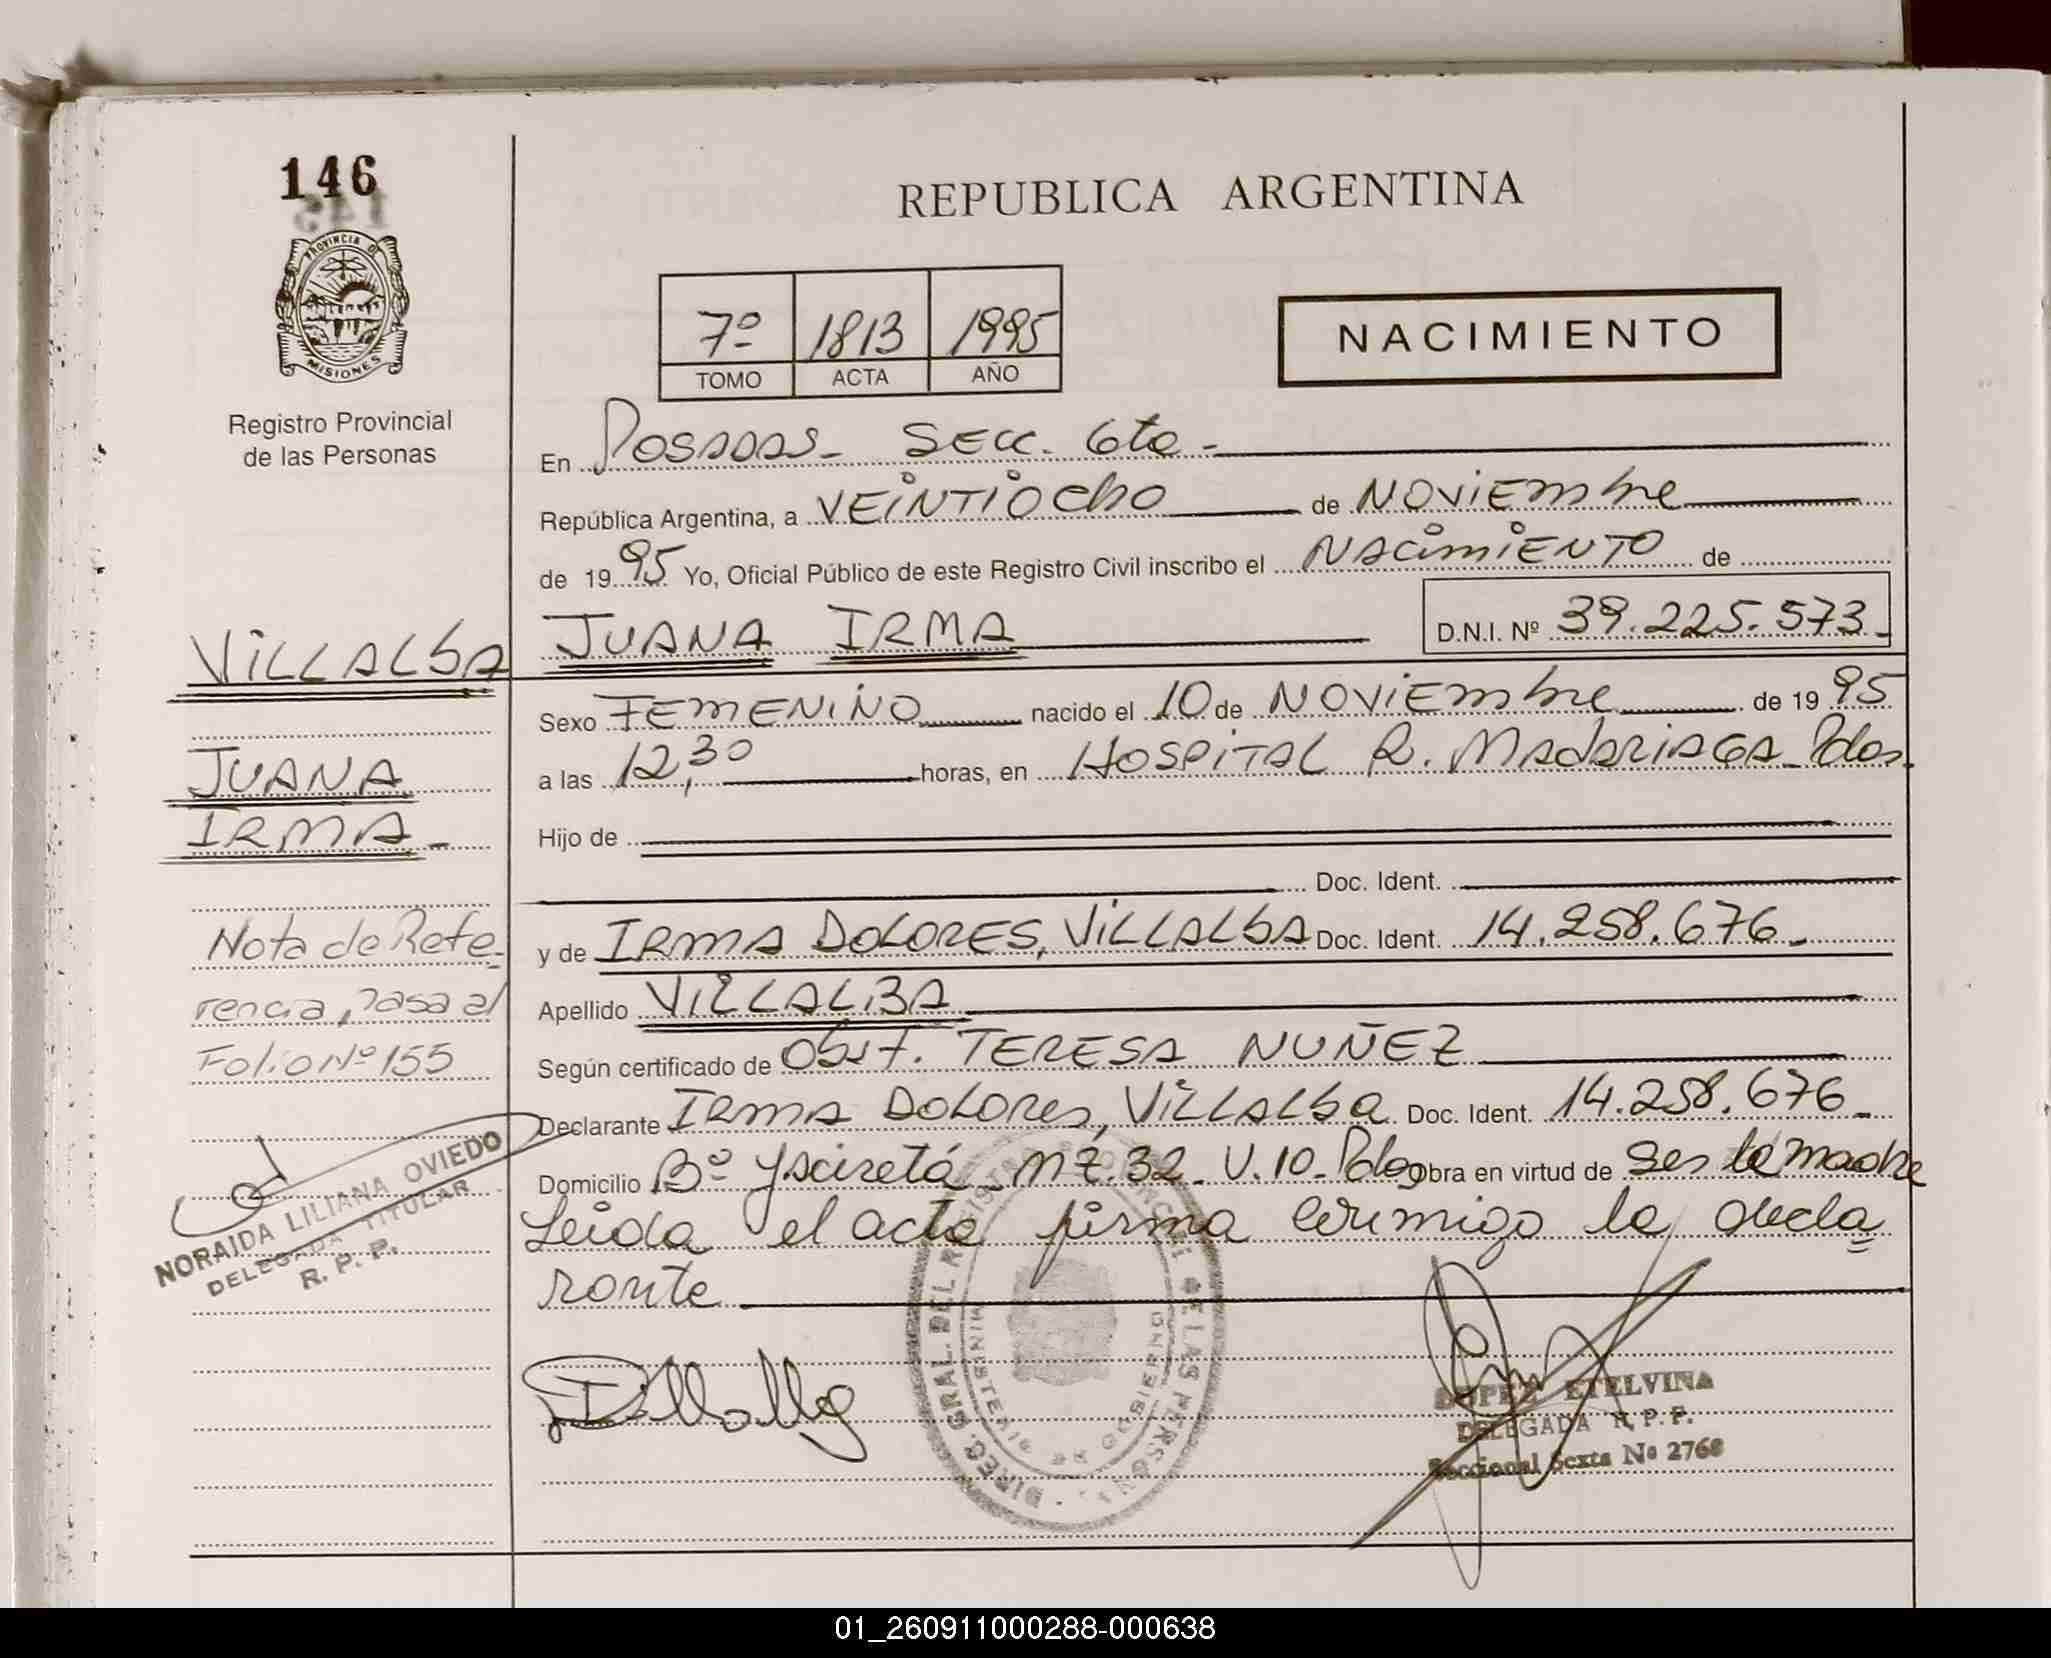 146
REPUBLICA ARGENTINA
PROVINCIA DE
MISIONES
7º 1813 1995
TOMO ACTA AÑO
NACIMIENTO
Registro Provincial
de las Personas
En POSADAS- SECC. 6ta-
República Argentina, a VEINTIOCHO de NOVIEMBRE
de 1995 Yo, Oficial Público de este Registro Civil inscribo el NACIMIENTO de
VILLALBA JUANA IRMA D.N.I. Nº 39.225.573-
Sexo FEMENINO nacido el 10 de NOVIEMBRE de 1995
JUANA
a las 12,30 horas, en HOSPITAL R. MADARIAGA-Pdas.
IRMA-
Hijo de
Doc. Ident.
Nota de Refe-
y de IRMA DOLORES, VILLALBA Doc. Ident. 14.258.676-
rencia, Pasa al
Apellido VILLALBA
Folio Nº 155
Según certificado de Obst. TERESA NUÑEZ
Declarante IRMA DOLORES, VILLALBA Doc. Ident. 14.258.676-
Domicilio Bº Yaciretá-MZ.32-V.10-Pdas Obra en virtud de ser la madre
Leida el acta firma conmigo la decla
rante
NORAIDA LILIANA OVIEDO
DELEGADA TITULAR
R. P. P.
DIREC. GRAL. DEL REGISTRO PROVINCIAL DE LAS PERSONAS
MINISTERIO DE GOBIERNO
LOPEZ ETELVINA
DELEGADA R. P. P.
Seccional Sexta Nº 2768
01_260911000288-000638